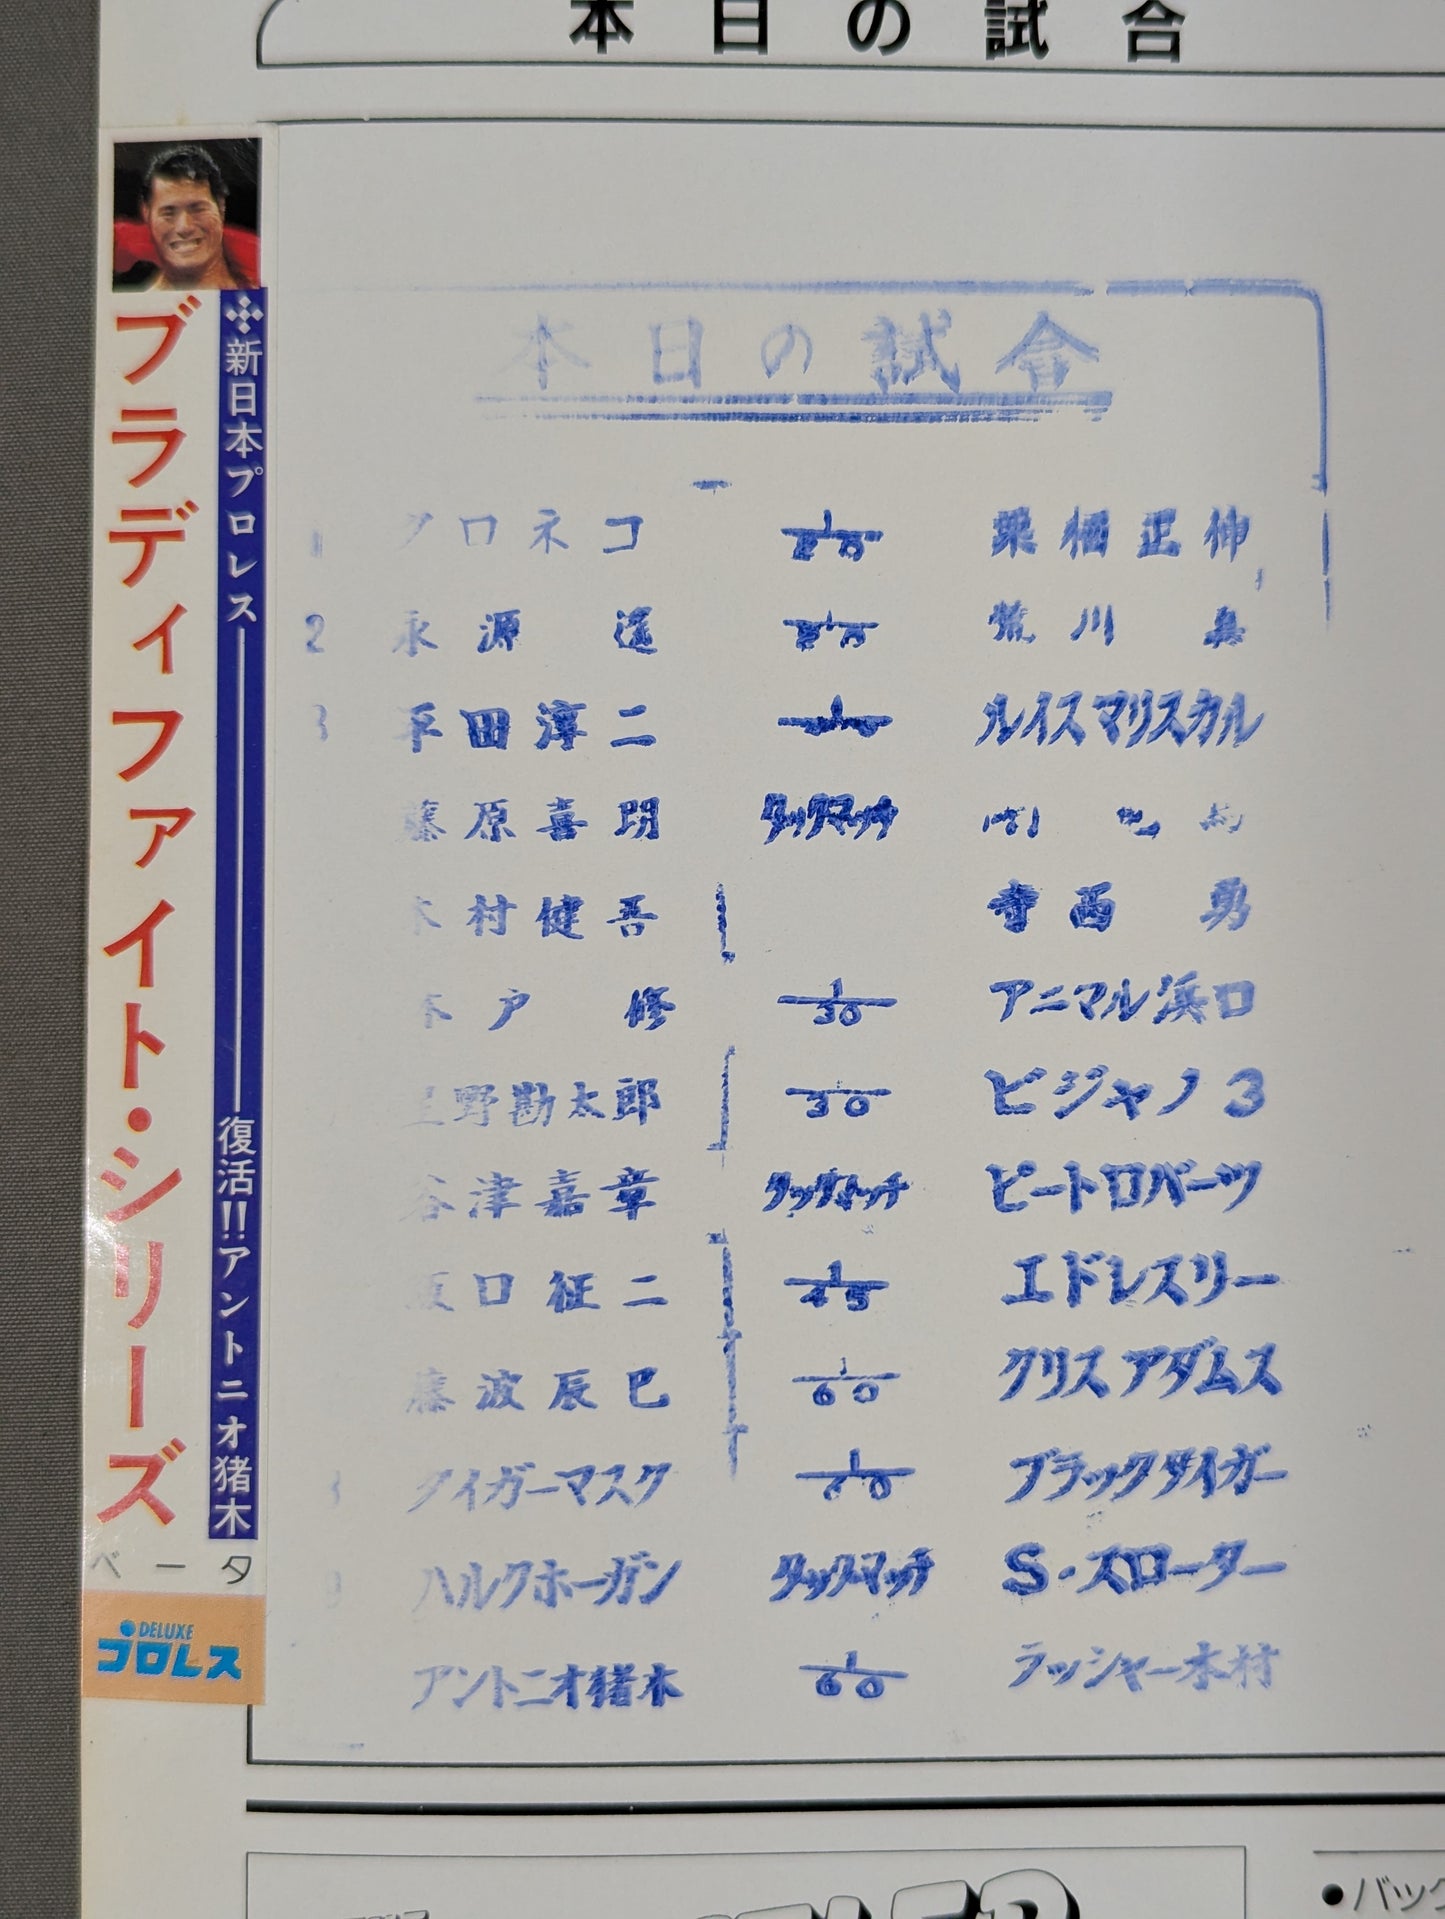 本日の試合
ブラディファイト・シリーズ
新日本プロレス
復活!!アントニオ猪木
ベータ
DELUXE
プロレス
本日の試合
1 クロネコ 1/20 栗栖正伸
2 永源遥 1/20 荒川真
3 平田淳二 ルイスマリスカル
藤原喜明 タッグマッチ
木村健吾 寺西勇
木戸修 1/30 アニマル浜口
星野勘太郎 1/30 ビジャノ3
谷津嘉章 タッグマッチ ピートロバーツ
坂口征二 1/45 エドレスリー
藤波辰巳 1/60 クリスアダムス
タイガーマスク 1/60 ブラックタイガー
9 ハルクホーガン タッグマッチ S・スローター
アントニオ猪木 1/60 ラッシャー木村
●バック